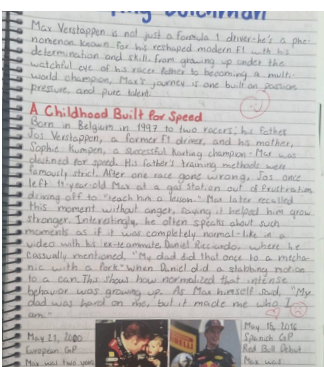 Dutchman
Max Verstappen is not just a formula 1 driver-he's a phe-
nomenon known for his reshaped modern F1 with his
determination and skill. From growing up under the
watchful eye of his racer father to becoming a multi-
world champion, Max's journey is one built on passion
pressure, and pure talent.
A Childhood Built for Speed
Born in Belgium in 1997 to two racers, his father
Jos Verstappen, a former F1 driver, and his mother,
Sophie Kumpen, a successful karting champion - Max was
destined for speed. His father's training methods were
famously strict. After one race gone wrong, Jos once
left -year-old Max at a gas station out of frustration
driving off to "teach him a lesson". Max later recalled
this moment without anger, saying it helped him grow
stronger. Interestingly, he often speaks about such
moments as if it was completely normal- like in a
video with his ex-teammate Daniel Ricciardo, where he
casually mentioned, "My dad did that once to a mecha-
nic with a fork" when Daniel did a stabbing motion
to a can. This shows how normalized that intense
behavior was growing up. As Max himself said, "My
dad was hard on me, but it made me who I
am"
May 21, 2000
European GP
Max was two years
May 15, 2016
Spanish GP
Red Bull Debut
Max was